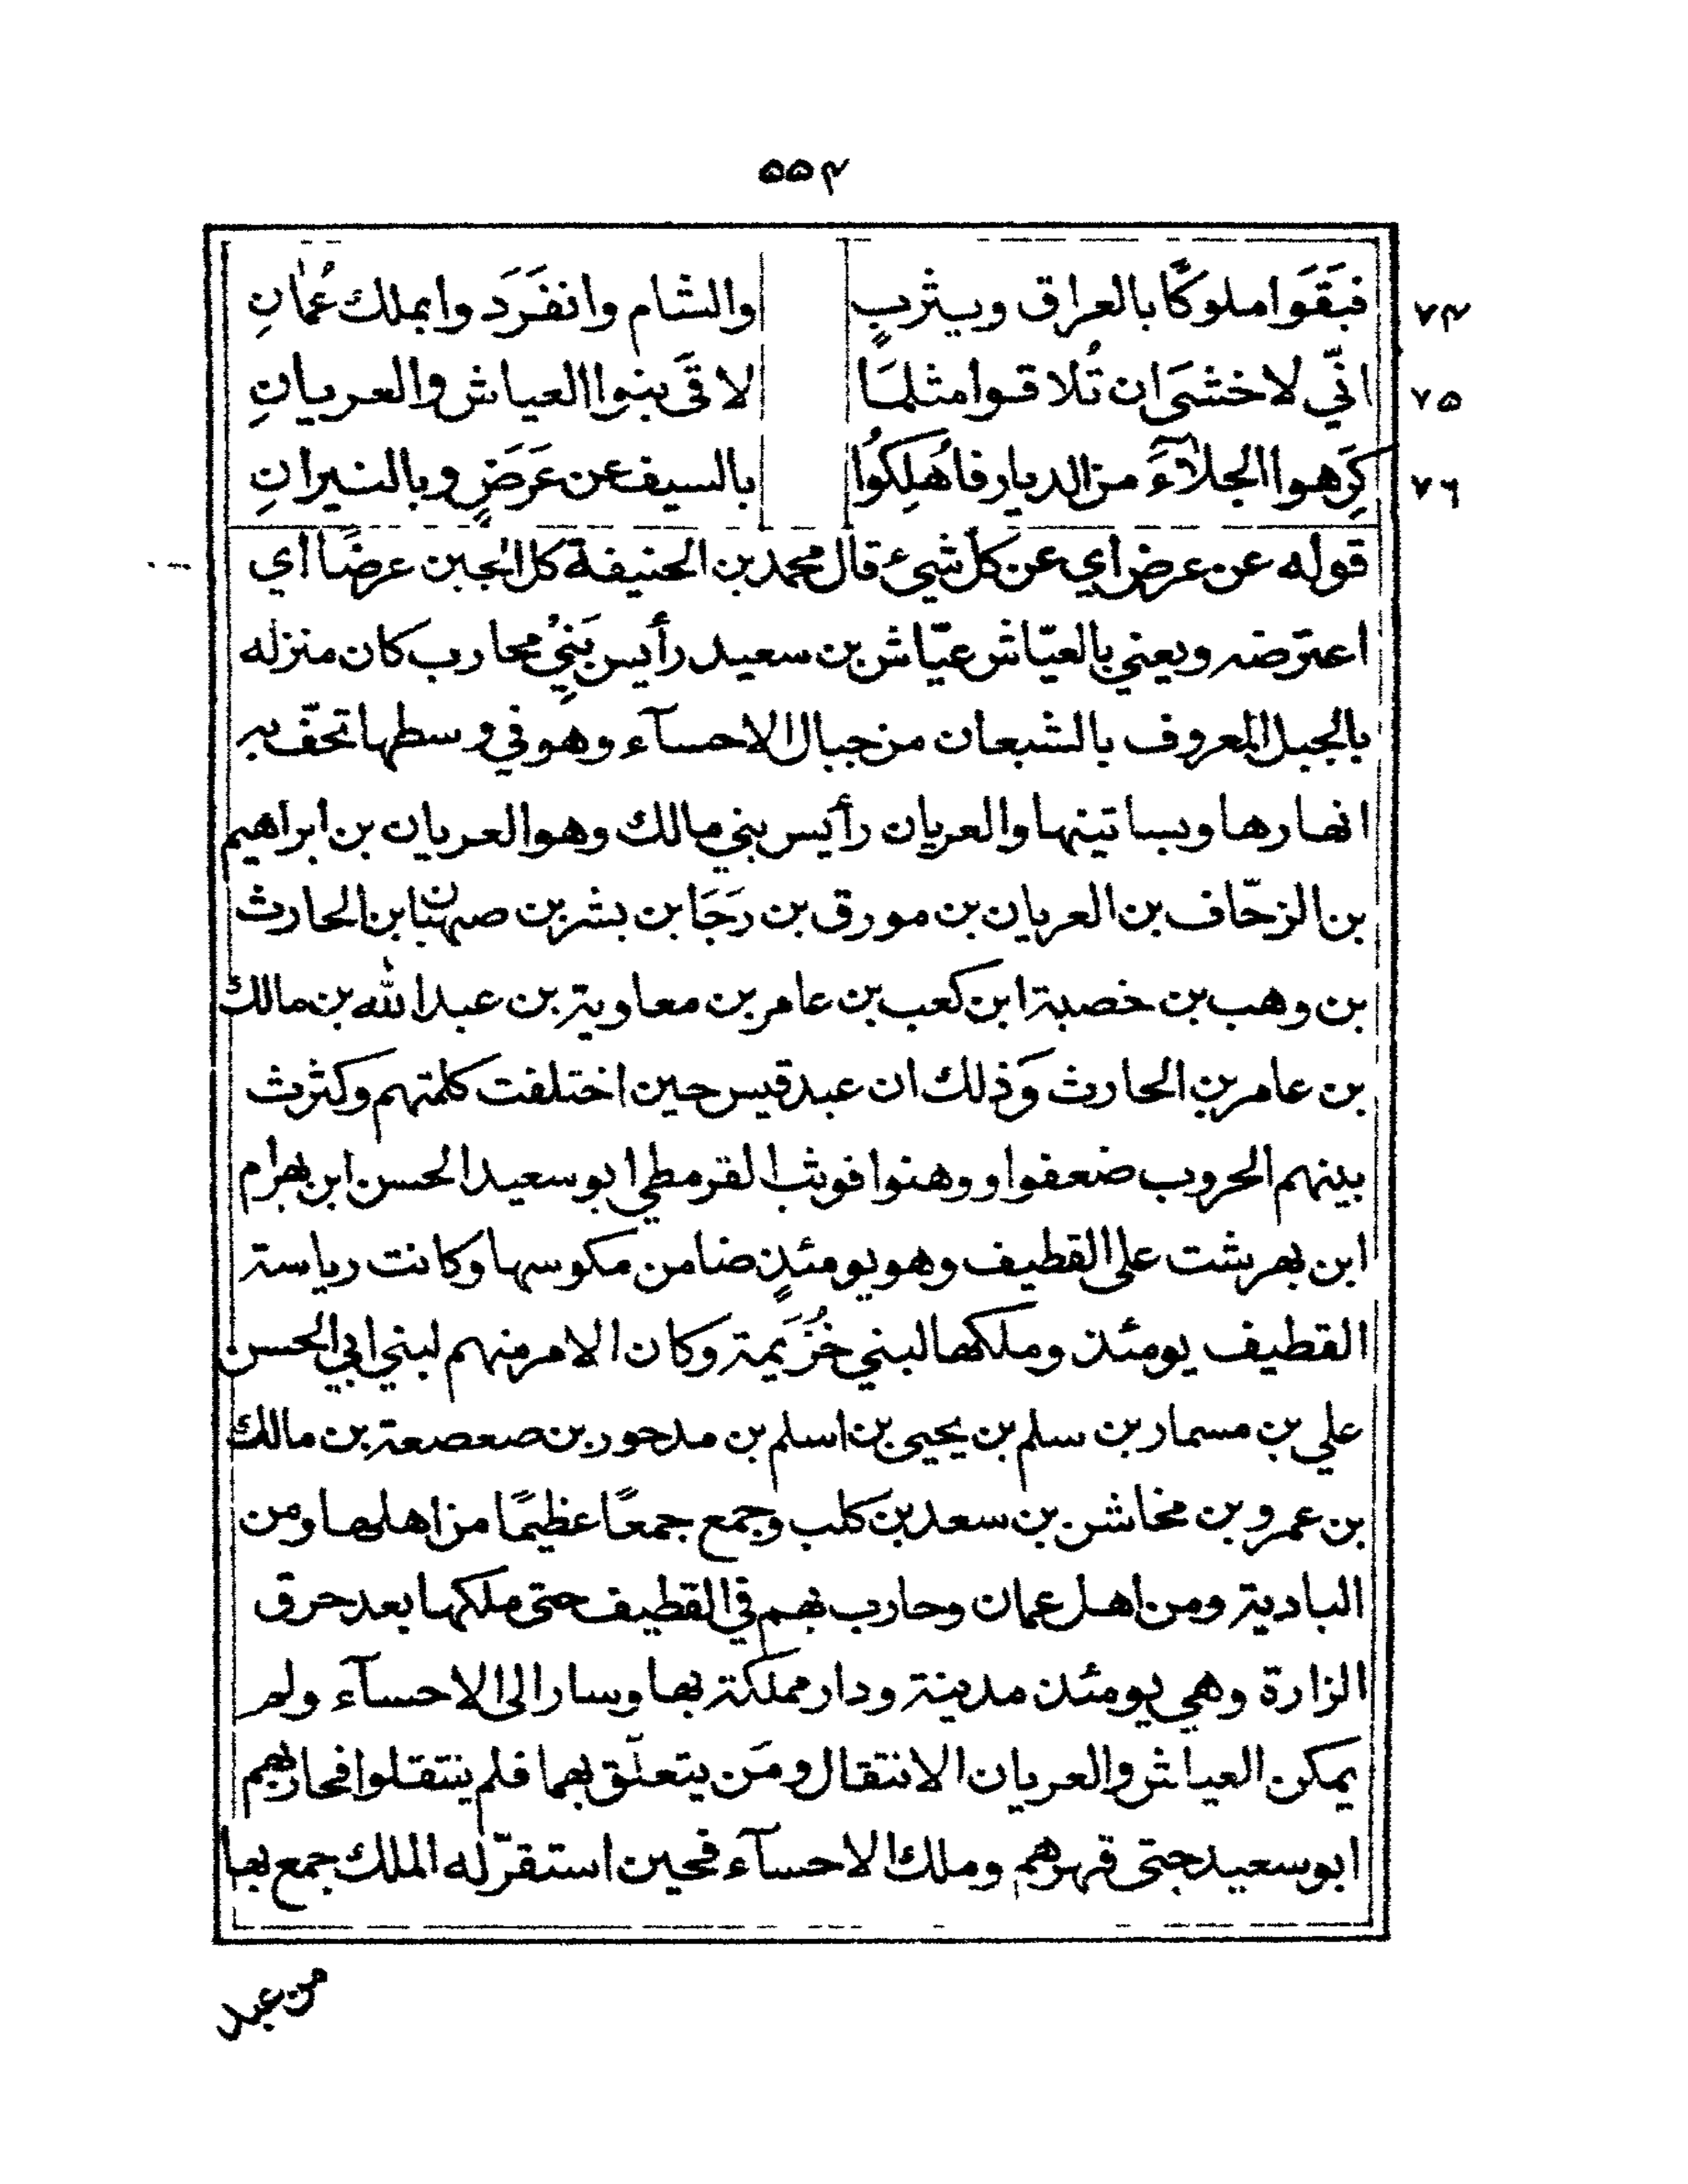 ٥٥٤
٧٤ فَبَقَوا ملوكًا بالعراق وبيثربٍ والشام وانفَرَدوا بملك عُمانِ
٧٥ انّي لاخشىَ ان تُلاقوا مثلمَا لاقَى بنوا العياش والعريانِ
٧٦ كَرِهوا الجلآءَ من الديار فاُهلِكوُا بالسيف عن عَرَضٍ وبالنيرانِ
قوله عن عرض اي عن كل شيئ قال محمد بن الحنيفة كل الجبن عرضًا اي
اعترضه ويعني بالعيّاش عيّاش بن سعيد رأيس بَنِيْ محارب كان منزله
بالجبل المعروف بالشبعان من جبال الاحسآء وهو في وسطها تحفّ به
انهارها وبساتينها والعريان رأيس بني مالك وهو العريان بن ابراهيم
بن الزحّاف بن العريان بن مورق بن رَجَا بن بشر بن صهبان بن الحارث
بن وهب بن خصبة ابن كعب بن عامر بن معاوية بن عبد الله بن مالك
بن عامر بن الحارث وَذلك ان عبد قيس حين اختلفت كلمتهم وكثرث
بينهم الحروب ضعفوا ووهنوا فوثب القرمطي ابو سعيد الحسن ابن بهرام
ابن بهرشت على القطيف وهو يومئذٍ ضامن مكوسها وكانت رياسة
القطيف يومئذ وملكها لبني خُزَيمة وكان الامر منهم لبني ابي الحسن
علي بن مسمار بن سلم بن يحيى بن اسلم بن مدحور بن صعصعة بن مالك
بن عمرو بن مخاشن بن سعد بن كلب وجمع جمعًا عظيمًا من اهلها ومن
البادية ومن اهل عمان وحارب بهم في القطيف حتى ملكها بعد حرق
الزارة وهي يومئذ مدينة ودار مملكة بها وسار الى الاحسآء ولم
يمكن العياش والعريان الانتقال ومَن يتعلّق بهما فلم ينتقلوا فحاربهم
ابو سعيد حتى قهرهم وملك الاحسآء فحين استقرّ له الملك جمع بها
من عبد